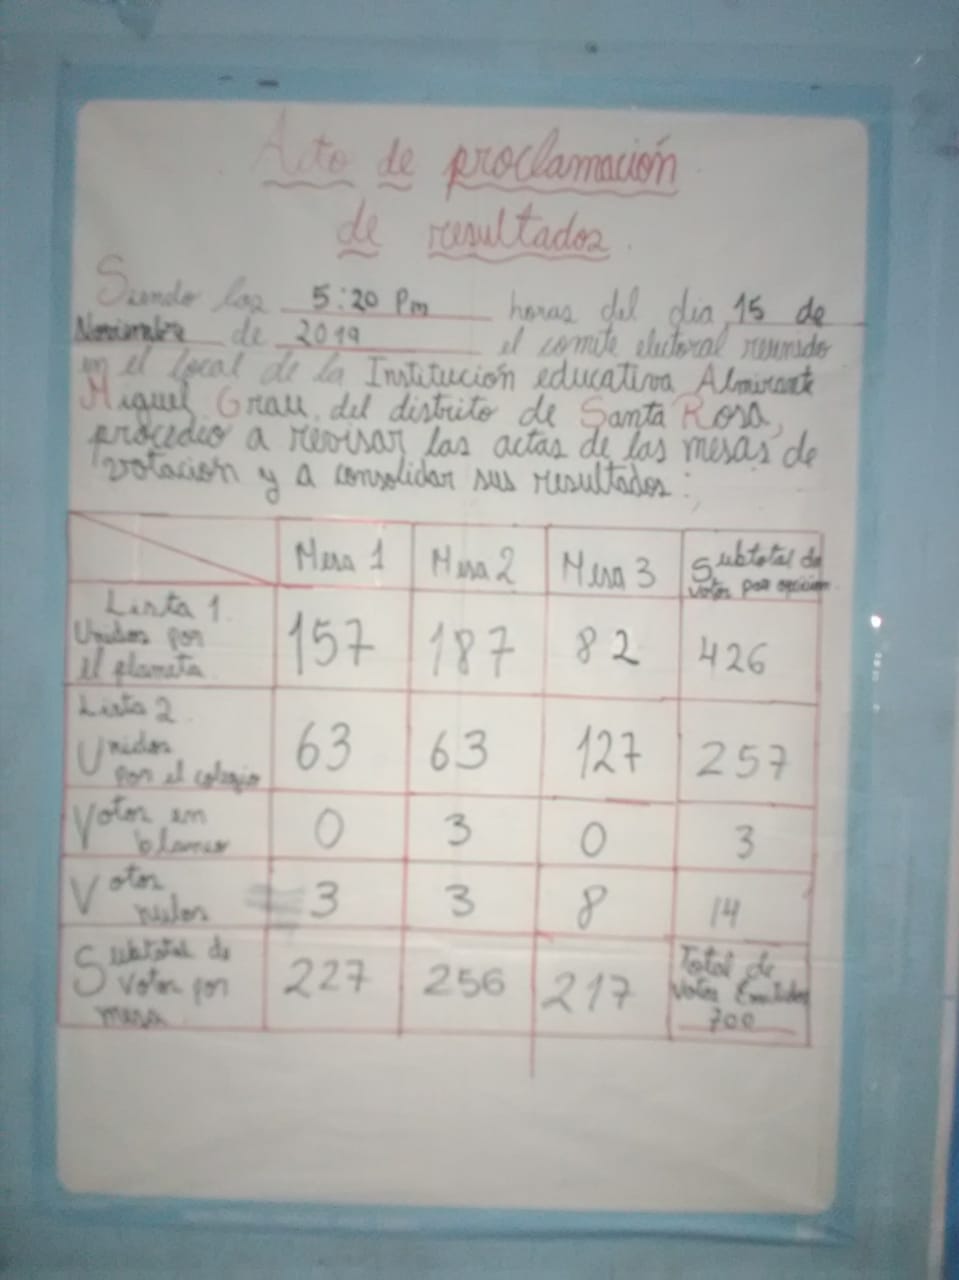 Acto de proclamación
de resultados.
Siendo las 5:20 Pm horas del día 15 de
Noviembre de 2019 el comité electoral reunido
en el local de la Institución educativa Almirante
Miguel Grau, del distrito de Santa Rosa,
procedio a revisar las actas de las mesas de
votación y a consolidar sus resultados:
Mesa 1 Mesa 2 Mesa 3 Subtotal de
votos por opcion
Lista 1.
Unidos por
el planeta
157 187 82 426
Lista 2
Unidos
por el colegio
63 63 127 257
Votos en
blanco
0 3 0 3
Votos
nulos
3 3 8 14
Subtotal de
votos por
mesa
227 256 217
Total de
votos Emitidos
700